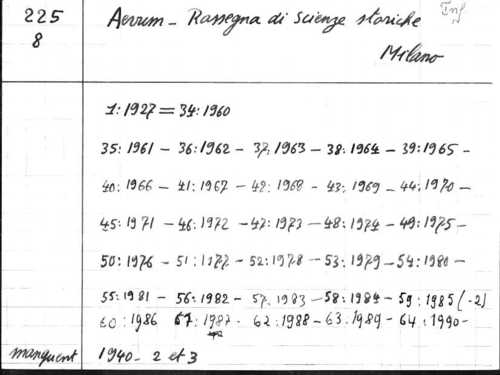 225 Aevum - Rassegna di scienze storiche Inf
8 Milano
1:1927 = 34:1960
35:1961 - 36:1962 - 37:1963 - 38:1964 - 39:1965 -
40:1966 - 41:1967 - 42:1968 - 43:1969 - 44:1970 -
45:1971 - 46:1972 - 47:1973 - 48:1974 - 49:1975 -
50:1976 - 51:1977 - 52:1978 - 53:1979 - 54:1980 -
55:1981 - 56:1982 - 57:1983 - 58:1984 - 59:1985 (-2)
60:1986 61:1987 - 62:1988 - 63:1989 - 64:1990 -
manquent 1940 - 2 et 3